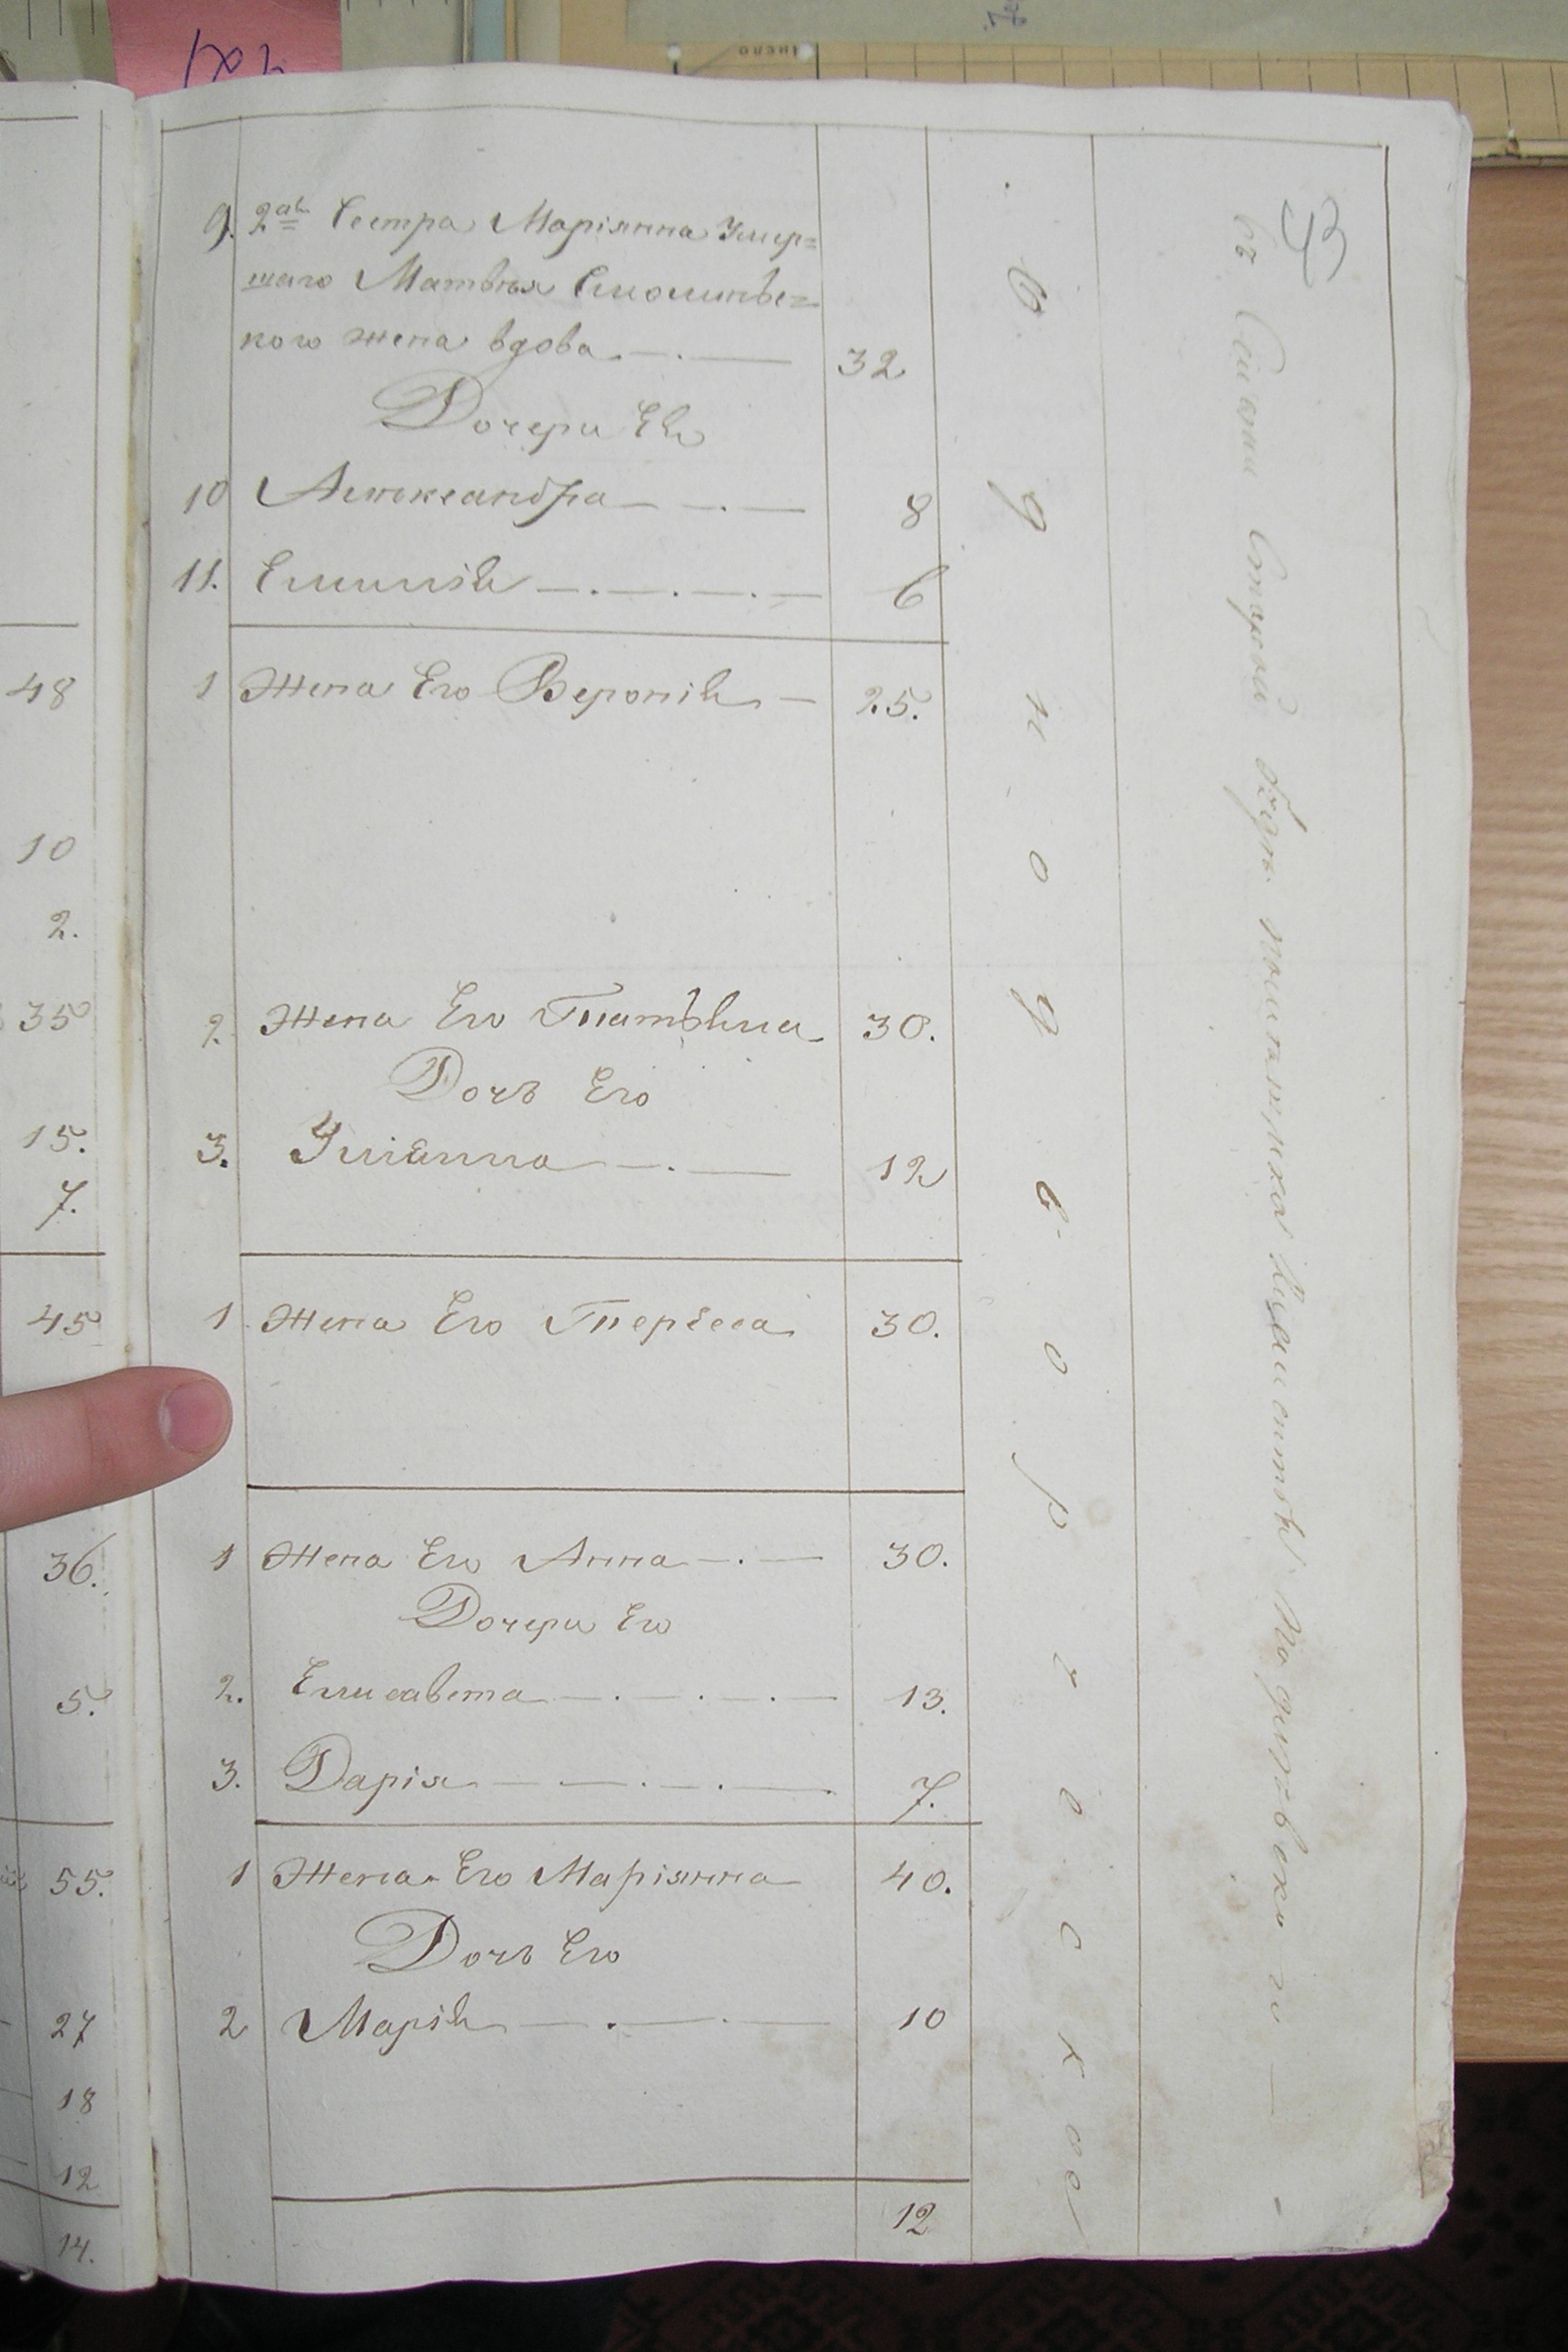 43
9. 2ая Сестра Маріянна Умер=
шаго Матвѣя
кого жена вдова 32
Дочери Ея
10 Александра 8
11. Емилія 6
1 Жена Его Вероника 25.
2. Жена Его Татьяна 30.
Дочь Его
3. Уліанна 12
1 Жена Его Тереса 30.
1 Жена Его Анна 30.
Дочери Его
2. Елисавета 13.
3. Дарія 7.
1 Жена Его Маріянна 40.
Дочь Его
2 Марія 10
12
Однодворческое
въ Селѣ Старой
48
10
2.
35
15.
7.
45
36.
5.
55.
27
18
12
14.